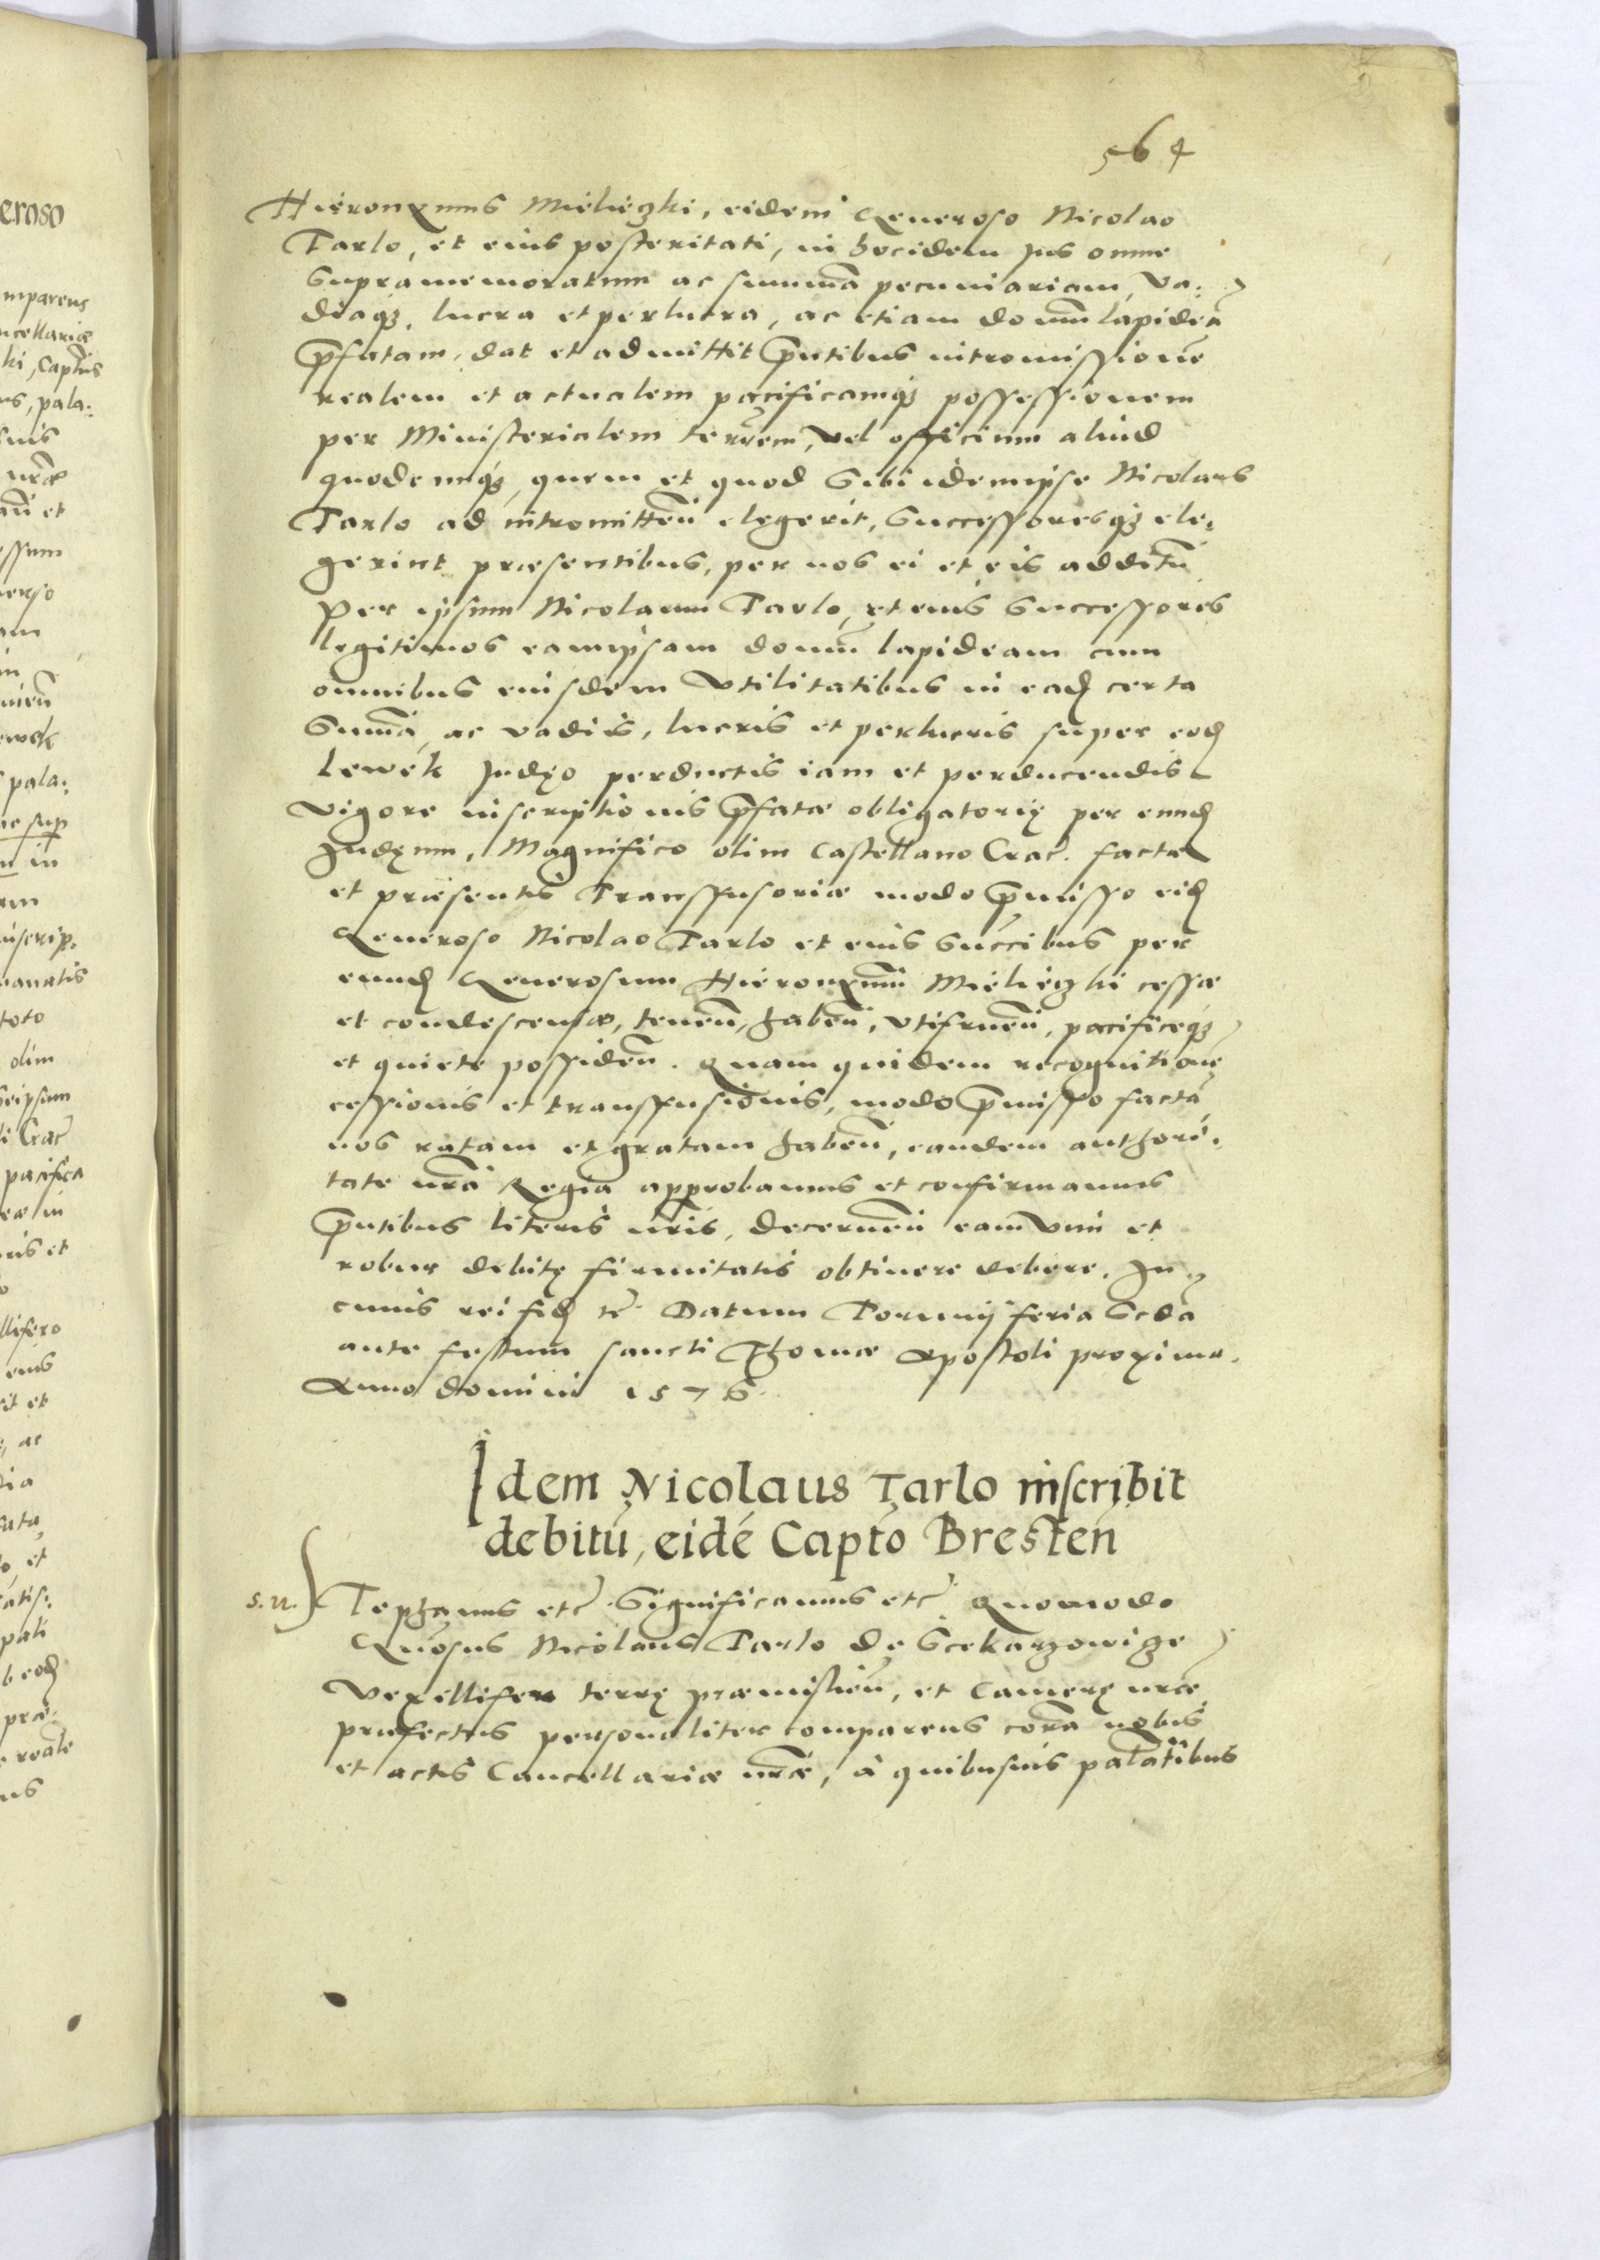 564
Hieronymus Mieliezki, eidem Generoso Nicolao
Tarlo, et eius posteritati, in hocidem jus omne
supramemoratum ac summā pecuniariam, va-
diaqʒ, lucra et perlucra, ac etiam domū lapideā
p̄fatam, dat et admittit p̄ntibus intromissionē
realem et actualem pacificamqʒ possessionem
per Ministerialem terrēm, vel officium aliud
quodcunqʒ, quem et quod sibi idemipse Nicolaus
Tarlo ad intromitteń elegerit, Successoresqʒ ele-
gerint præsentibus, per nos ei et eis additū
Per ipsum Nicolaum Tarlo, et eius Successores
legitimos eamipsam domū lapideam cum
omnibus eiusdem Vtilitatibus in eadȩ certa
Summā, ac vadiis, lucris et perlucris super eodȩ
Lewek Judęo perductis iam et perducendis
Vigore inscriptionis p̄fatæ obligatorię per eundȩ
Judęum, Magnifico olim Castellano Crac̄. factæ
et præsentis Transfusoriæ modo p̄misso eidȩ
Generoso Nicolao Tarlo et eius Succ̄ibus per
eundȩ Generosum Hieronymū Mieliezki cessæ
et condescensæ, teneń, habeń, vtifrueń, pacificeqʒ
et quiete possideń. Quam quidem recognitionē
cessionis et transfusionis, modo p̄misso factā
nos ratam et gratam habeń, eandem authori-
tate nrā Regia approbamus et confirmamus
p̄ntibus literis nr̄is, decerneń eam vim et
robur debitę firmitatis obtinere debere. In
cuius rei fidȩ etc̄. Datum Torunij feria Scda
ante festum sancti Thomæ Apostoli proxima.
Anno domini 1576.
Idem Nicolaus Tarlo inscribit
debitū, eidē Captō Bresteń
s. n. Stephanus etc̄ Significamus etc̄ Quomodo
Gnōsus Nicolaus Tarlo de Scekarzowize
Vexillifer terrę præmislień, et Camerę nrāe
præfectus personaliter comparens corā nobis
et actis Cancellariæ nrāe, à quibusuis palatībus
eroso
mparens
ncellariæ
ki, Captūs
us, pala-
suis
nrāe
et
ssum
am
in
ewek
pala-
ac sup
in
inscrip.
toto
olim
seipsum
Crac̄
pacifica
in
ris et
llifero
eius
it et
, ac
ia
o, et
atis-
pali
b eodȩ
præ-
reale
us